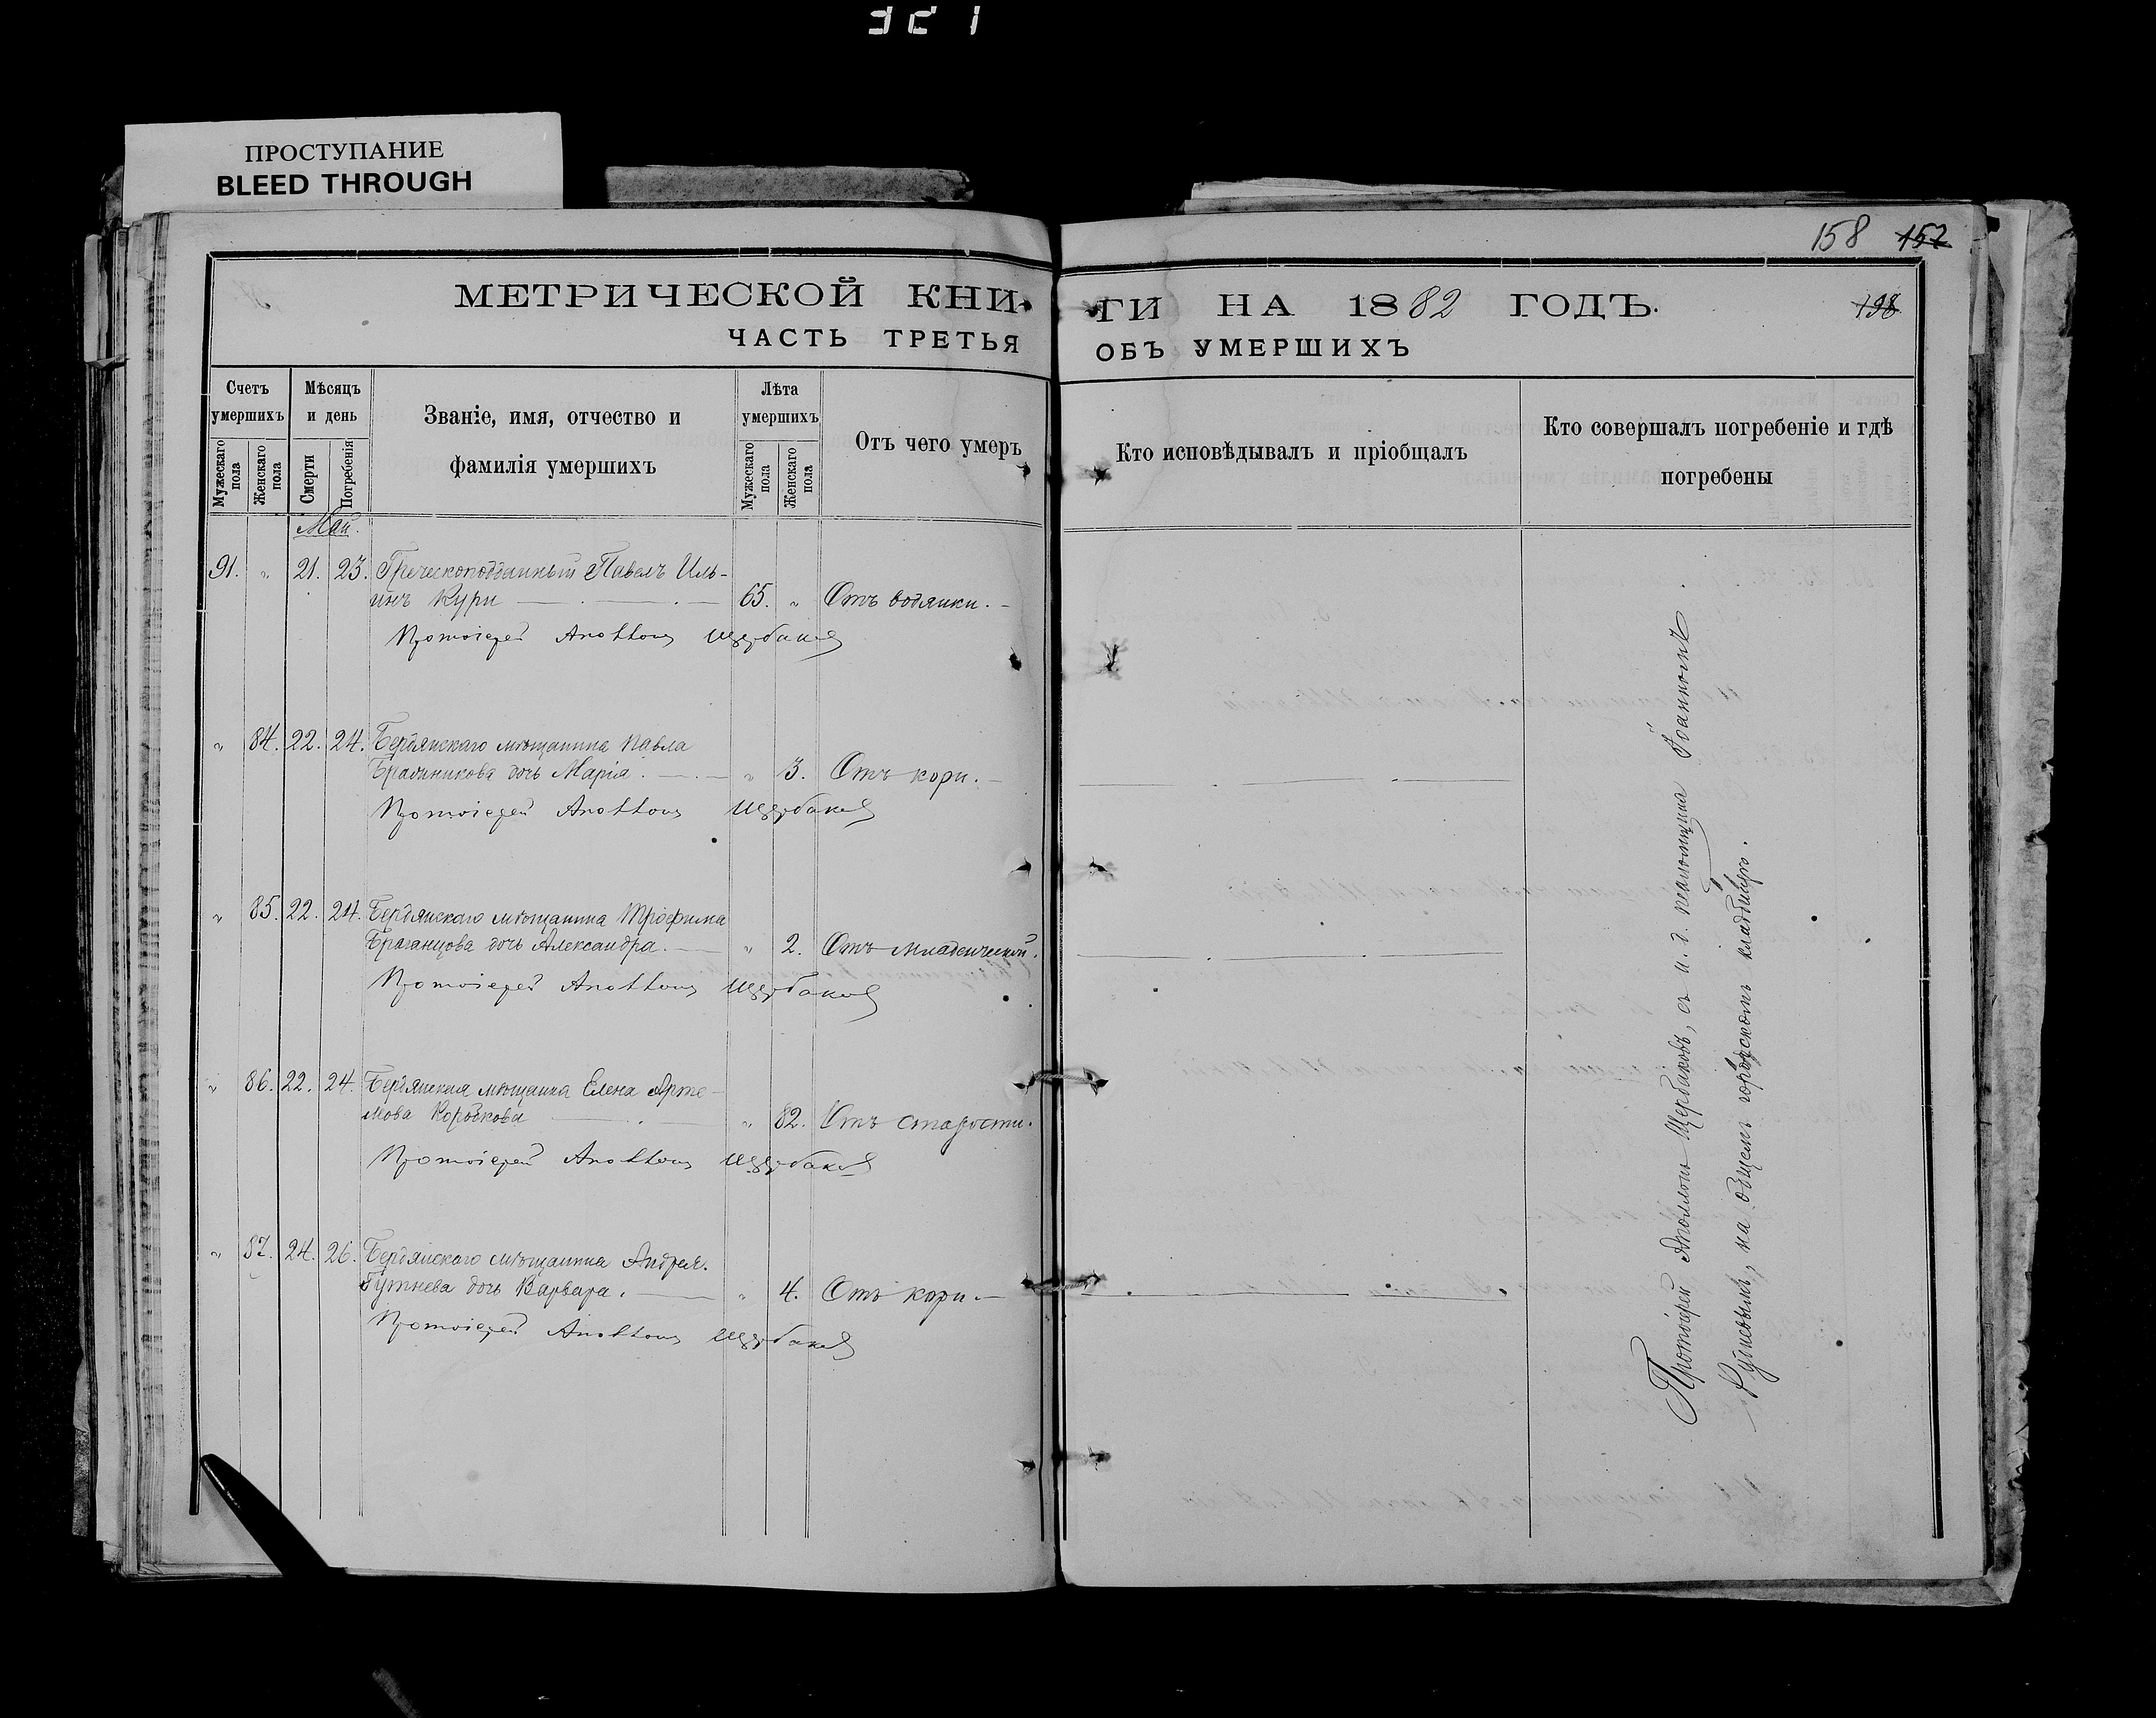 321
ПРОСТУПАНИЕ
BLEED THROUGH
158 157
198
МЕТРИЧЕСКОЙ КНИГИ НА 1882 ГОДЪ.
ЧАСТЬ ТРЕТЬЯ ОБЪ УМЕРШИХЪ
Счетъ умершихъ
Мужескаго пола
Женскаго пола
Мѣсяцъ и день
Смерти
Погребенія
Званіе, имя, отчество и
фамилія умершихъ
Лѣта умершихъ
Мужескаго пола
Женскаго пола
Отъ чего умеръ
Кто исповѣдывалъ и пріобщалъ
Кто совершалъ погребеніе и гдѣ
погребены
Май.
91. " 21. 23. Греческоподданный Павелъ Иль-
инъ Кури 65. " Отъ водянки.
Протоіерей Аполлонъ Щербаковъ
" 84. 22. 24. Бердянскаго мѣщанина Павла
дочь Марія. " 3. Отъ кори.
Протоіерей Аполлонъ Щербаковъ
" 85. 22. 24. Бердянскаго мѣщанина Трофима
Браганцова дочь Александра. " 2. Отъ младенческой.
Протоіерей Аполлонъ Щербаковъ
" 86. 22. 24. Бердянская мѣщанка Елена Арте-
мова Коробкова " 82. Отъ старости.
Протоіерей Аполлонъ Щербаковъ
" 87. 24. 26. Бердянскаго мѣщанина Андрея
Гутнева дочь Варвара. " 4. Отъ кори.
Протоіерей Аполлонъ Щербаковъ
Протоіерей Аполлонъ Щербаковъ, съ и. д. псаломщика Іоанномъ
на общемъ городскомъ кладбищѣ.